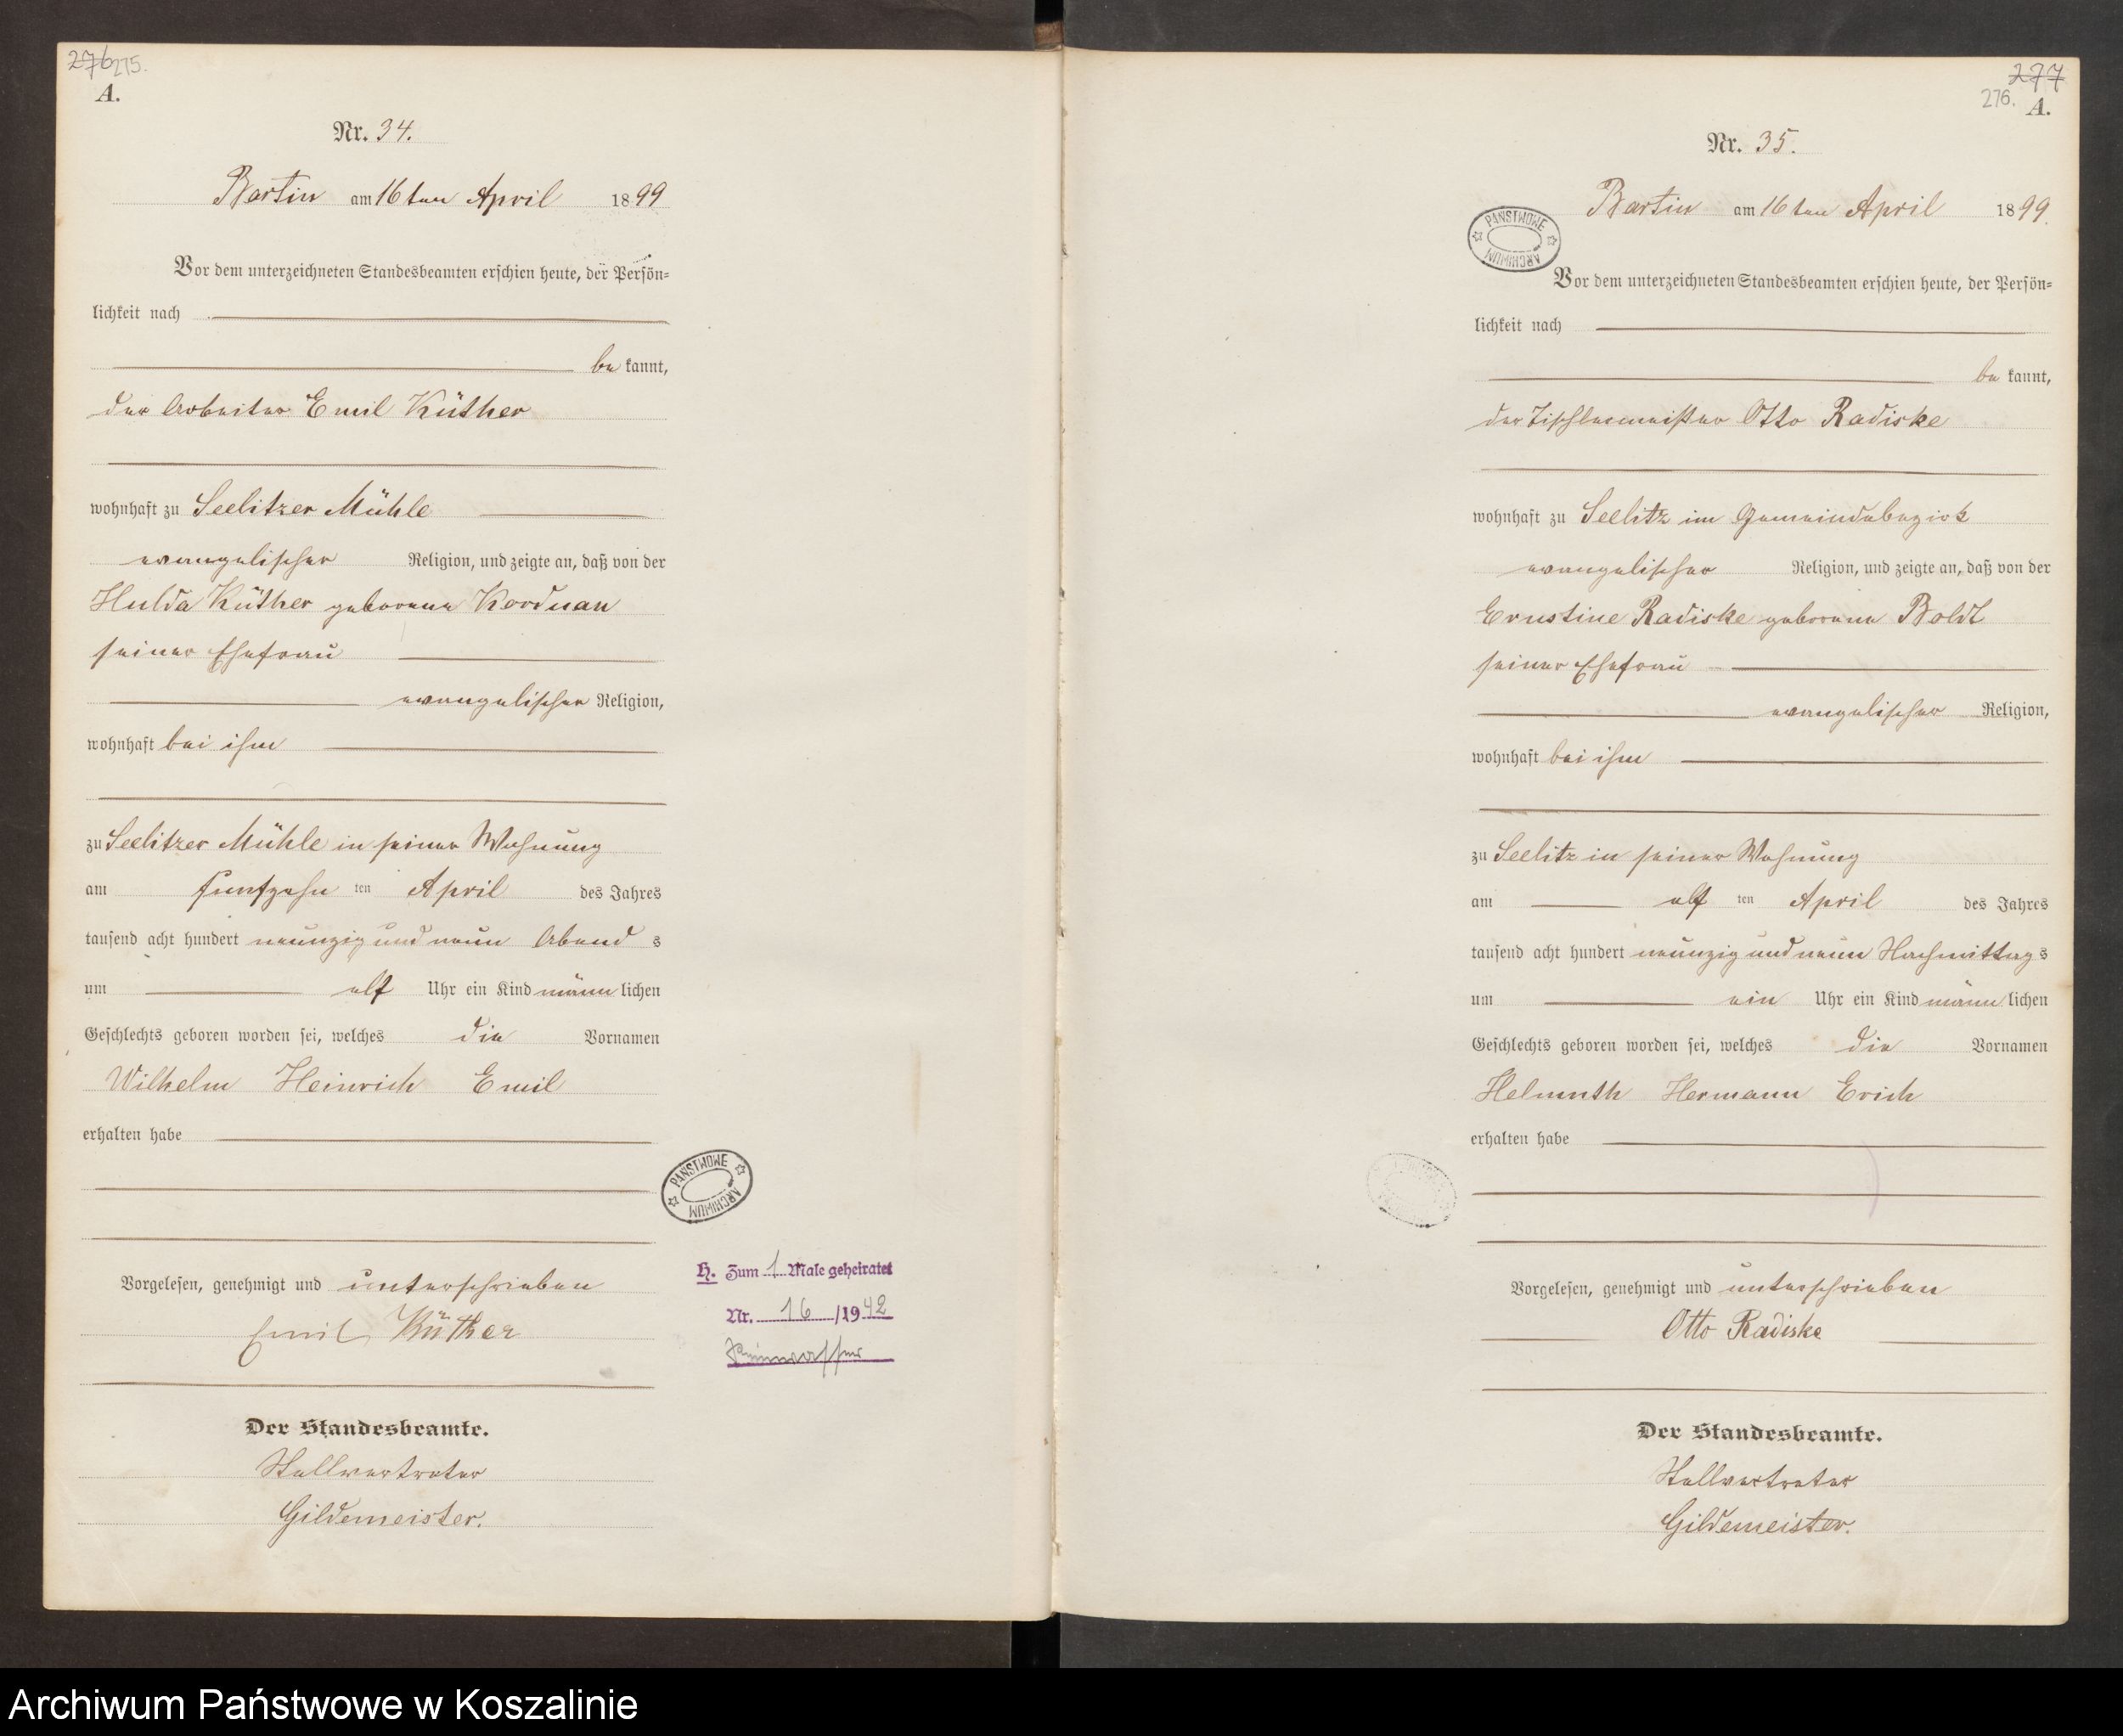 276 275.
A.
Nr. 34.
Bartin am 16ten April 1899
Vor dem unterzeichneten Standesbeamten erschien heute, der Persön-
lichkeit nach
bekannt,
der Arbeiter Emil Küther
wohnhaft zu Seelitzer Mühle
evangelischer Religion, und zeigte an, daß von der
Hulda Küther geborene Korduan
seiner Ehefrau
evangelischer Religion,
wohnhaft bei ihm
zu Seelitzer Mühle in seiner Wohnung
am funfzehn ten April des Jahres
tausend acht hundert neunzig und neun Abends
um elf Uhr ein Kind männlichen
Geschlechts geboren worden sei, welches die Vornamen
Wilhelm Heinrich Emil
erhalten habe
PAŃSTWOWE ARCHIWUM
Vorgelesen, genehmigt und unterschrieben
Emil Küther
H. Zum 1 Male geheiratet
Nr. 16/1942
Der Standesbeamte.
Stellvertreter
Gildemeister.
277
276. A.
Nr. 35.
Bartin am 16ten April 1899.
PAŃSTWOWE ARCHIWUM
Vor dem unterzeichneten Standesbeamten erschien heute, der Persön-
lichkeit nach
bekannt,
der Tischlermeister Otto Radiske
wohnhaft zu Seelitz im Gemeindebezirk
evangelischer Religion, und zeigte an, daß von der
Ernstine Radiske geborene Boldt
seiner Ehefrau
evangelischer Religion,
wohnhaft bei ihm
zu Seelitz in seiner Wohnung
am elf ten April des Jahres
tausend acht hundert neunzig und neun Nachmittags
um ein Uhr ein Kind männlichen
Geschlechts geboren worden sei, welches die Vornamen
Helmuth Hermann Erich
erhalten habe
Vorgelesen, genehmigt und unterschrieben
Otto Radiske
Der Standesbeamte.
Stellvertreter
Gildemeister.
Archiwum Państwowe w Koszalinie